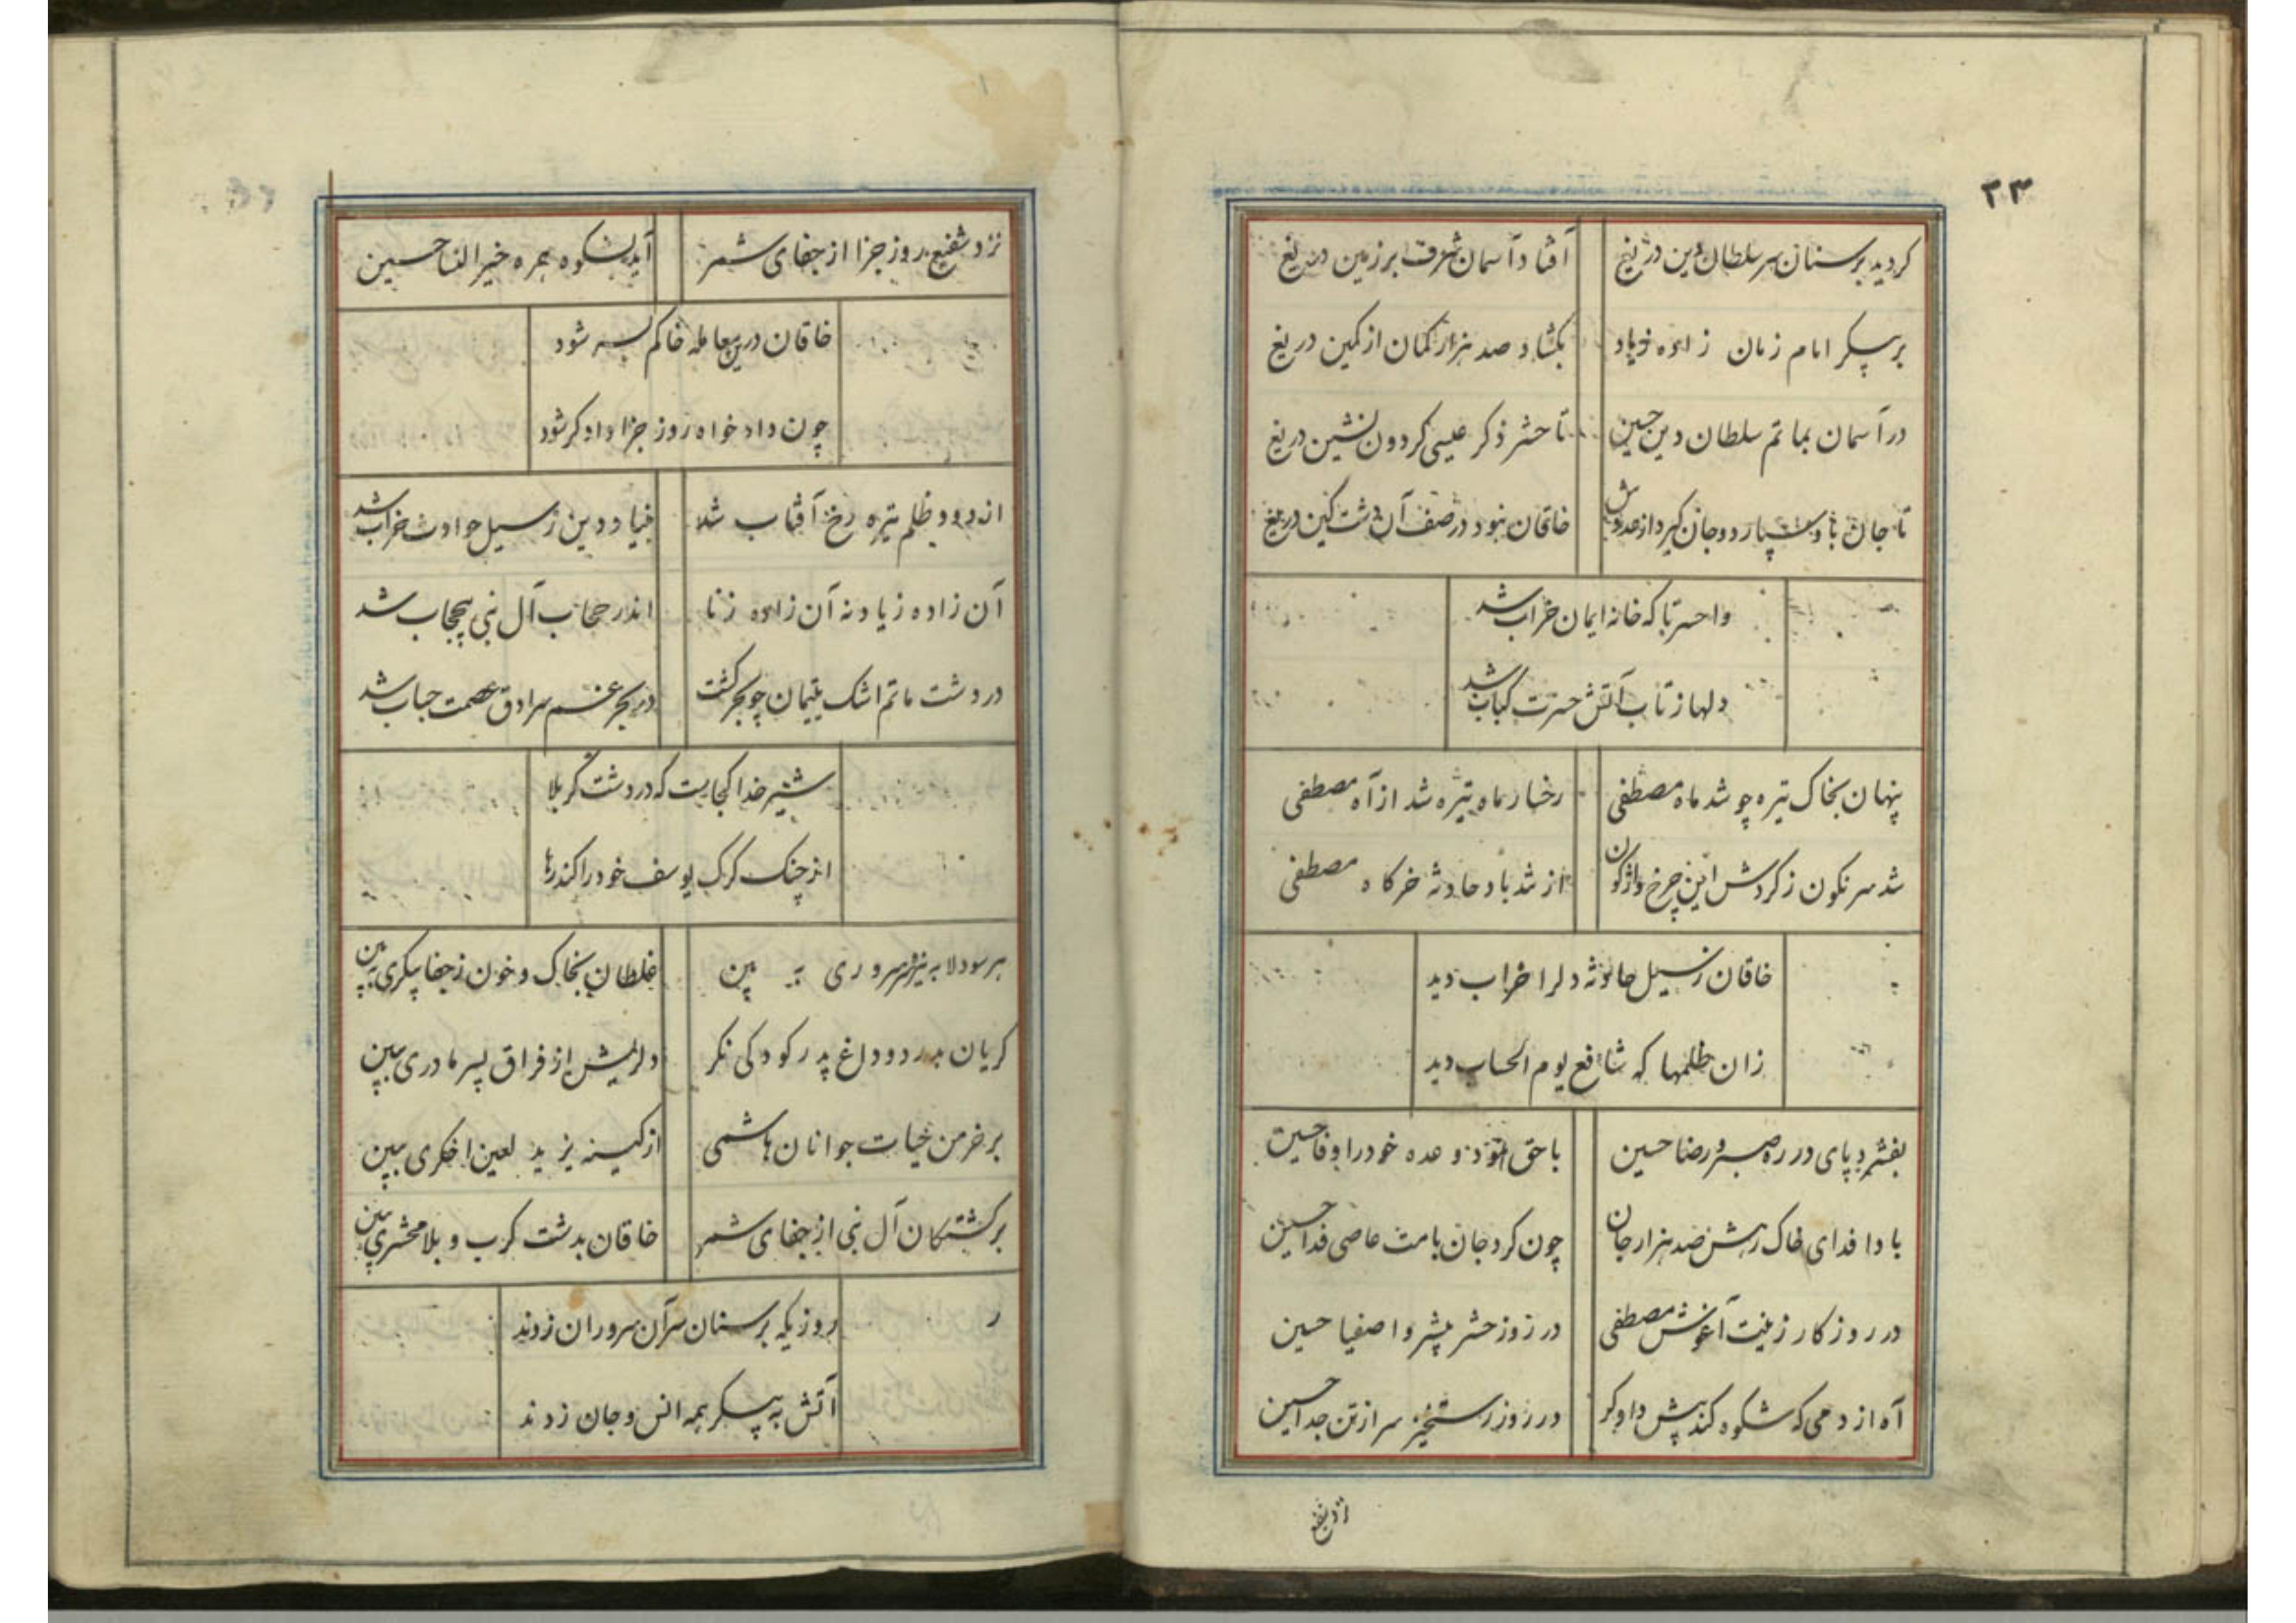 ۳۴
کردید برسنان سر سلطان دین دریغ افتاد آسمان شرف بر زمین دریغ
بر پیکر امام زمان زاده زیاد بکشاد صد هزار کمان از کمین دریغ
در آسمان بماتم سلطان دین حسین تا حشر ذکر عیسی کردون نشین دریغ
تا جان باو سپارد و جان کیرد از عدوش خاقان نبود در صف آن دشت کین دریغ
واحسرتا که خانه ایمان خراب شد
دلها ز تاب آتش حسرت کباب شد
پنهان بخاک تیره چو شد ماه مصطفی رخسار ماه تیره شد از آه مصطفی
شد سرنکون ز کردش این چرخ واژکون از تند باد حادثه خرکاه مصطفی
خاقان ز سیل حادثه دلرا خراب دید
زان ظلمها که شافع یوم الحساب دید
بفشرد پای در ره صبر و رضا حسین با حق نمود وعده خود را وفا حسین
بادا فدای خاک رهش صد هزار جان چون کرد جان بامت عاصی فدا حسین
در روزکار زینت آغوش مصطفی در روز حشر پیشرو اصفیا حسین
آه از دمی که شکوه کند پیش دادکر در روز رستخیز سر از تن جدا حسین
نزد شفیع
نزد شفیع روز جزا از جفای شمر آید بشکوه همره خیرالنسا حسین
خاقان درین معامله خاکم بسر شود
چون دادخواه روز جزا دادکر شود
از دود ظلم تیره رخ آفتاب شد بنیاد دین ز سیل حوادث خراب شد
آن زاده زیاد نه آن زاده زنا اندر حجاب آل نبی بیحجاب شد
در دشت ماتم اشک یتیمان چو بحر کشت در بحر غم سرادق عصمت حباب شد
شیر خدا کجاست که در دشت کربلا
از چنک کرک یوسف خود را کند رها
هر سو دلا به نیزه سر سروری به بین غلطان بخاک و خون ز جفا پیکری به بین
کریان بدرد و داغ پدر کودکی نکر دلریش از فراق پسر مادری ببین
بر خرمن حیات جوانان هاشمی از کینه یزید لعین اخکری ببین
بر کشتکان آل نبی از جفای شمر خاقان بدشت کرب و بلا محشری ببین
روزیکه بر سنان سر آن سروران زدند
آتش به پیکر همه انس و جان زدند